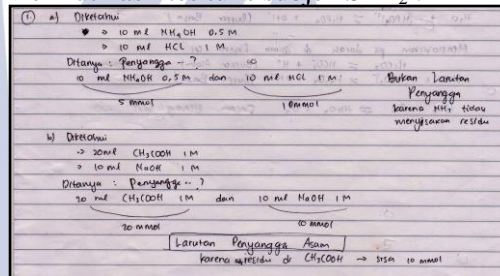 ① a) Diketahui
→ 10 ml NH4OH 0,5 M
→ 10 ml HCL 1 M
Ditanya : Penyangga - - ?
10 ml NH4OH 0,5 M dan 10 ml HCL 1 M
5 mmol 10 mmol
Bukan Larutan
Penyangga
karena NH3 tidak
menyisakan residu
b) Diketahui
→ 20ml CH3COOH 1 M
→ 10 ml NaOH 1 M
Ditanya : Penyangga - - ?
20 ml CH3COOH 1 M dan 10 ml NaOH 1 M
20 mmol 10 mmol
Larutan Penyangga Asam
karena residu di CH3COOH → sisa 10 mmol